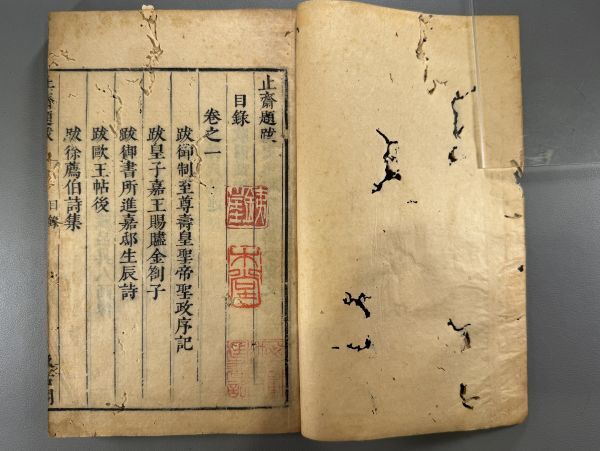 止齋題跋
目錄
卷之一
跋御制至尊壽皇聖帝聖政序記
跋皇子嘉王賜贐金劄子
跋御書所進嘉邸生辰詩
跋歐王帖後
跋徐薦伯詩集
止齋題跋
目錄